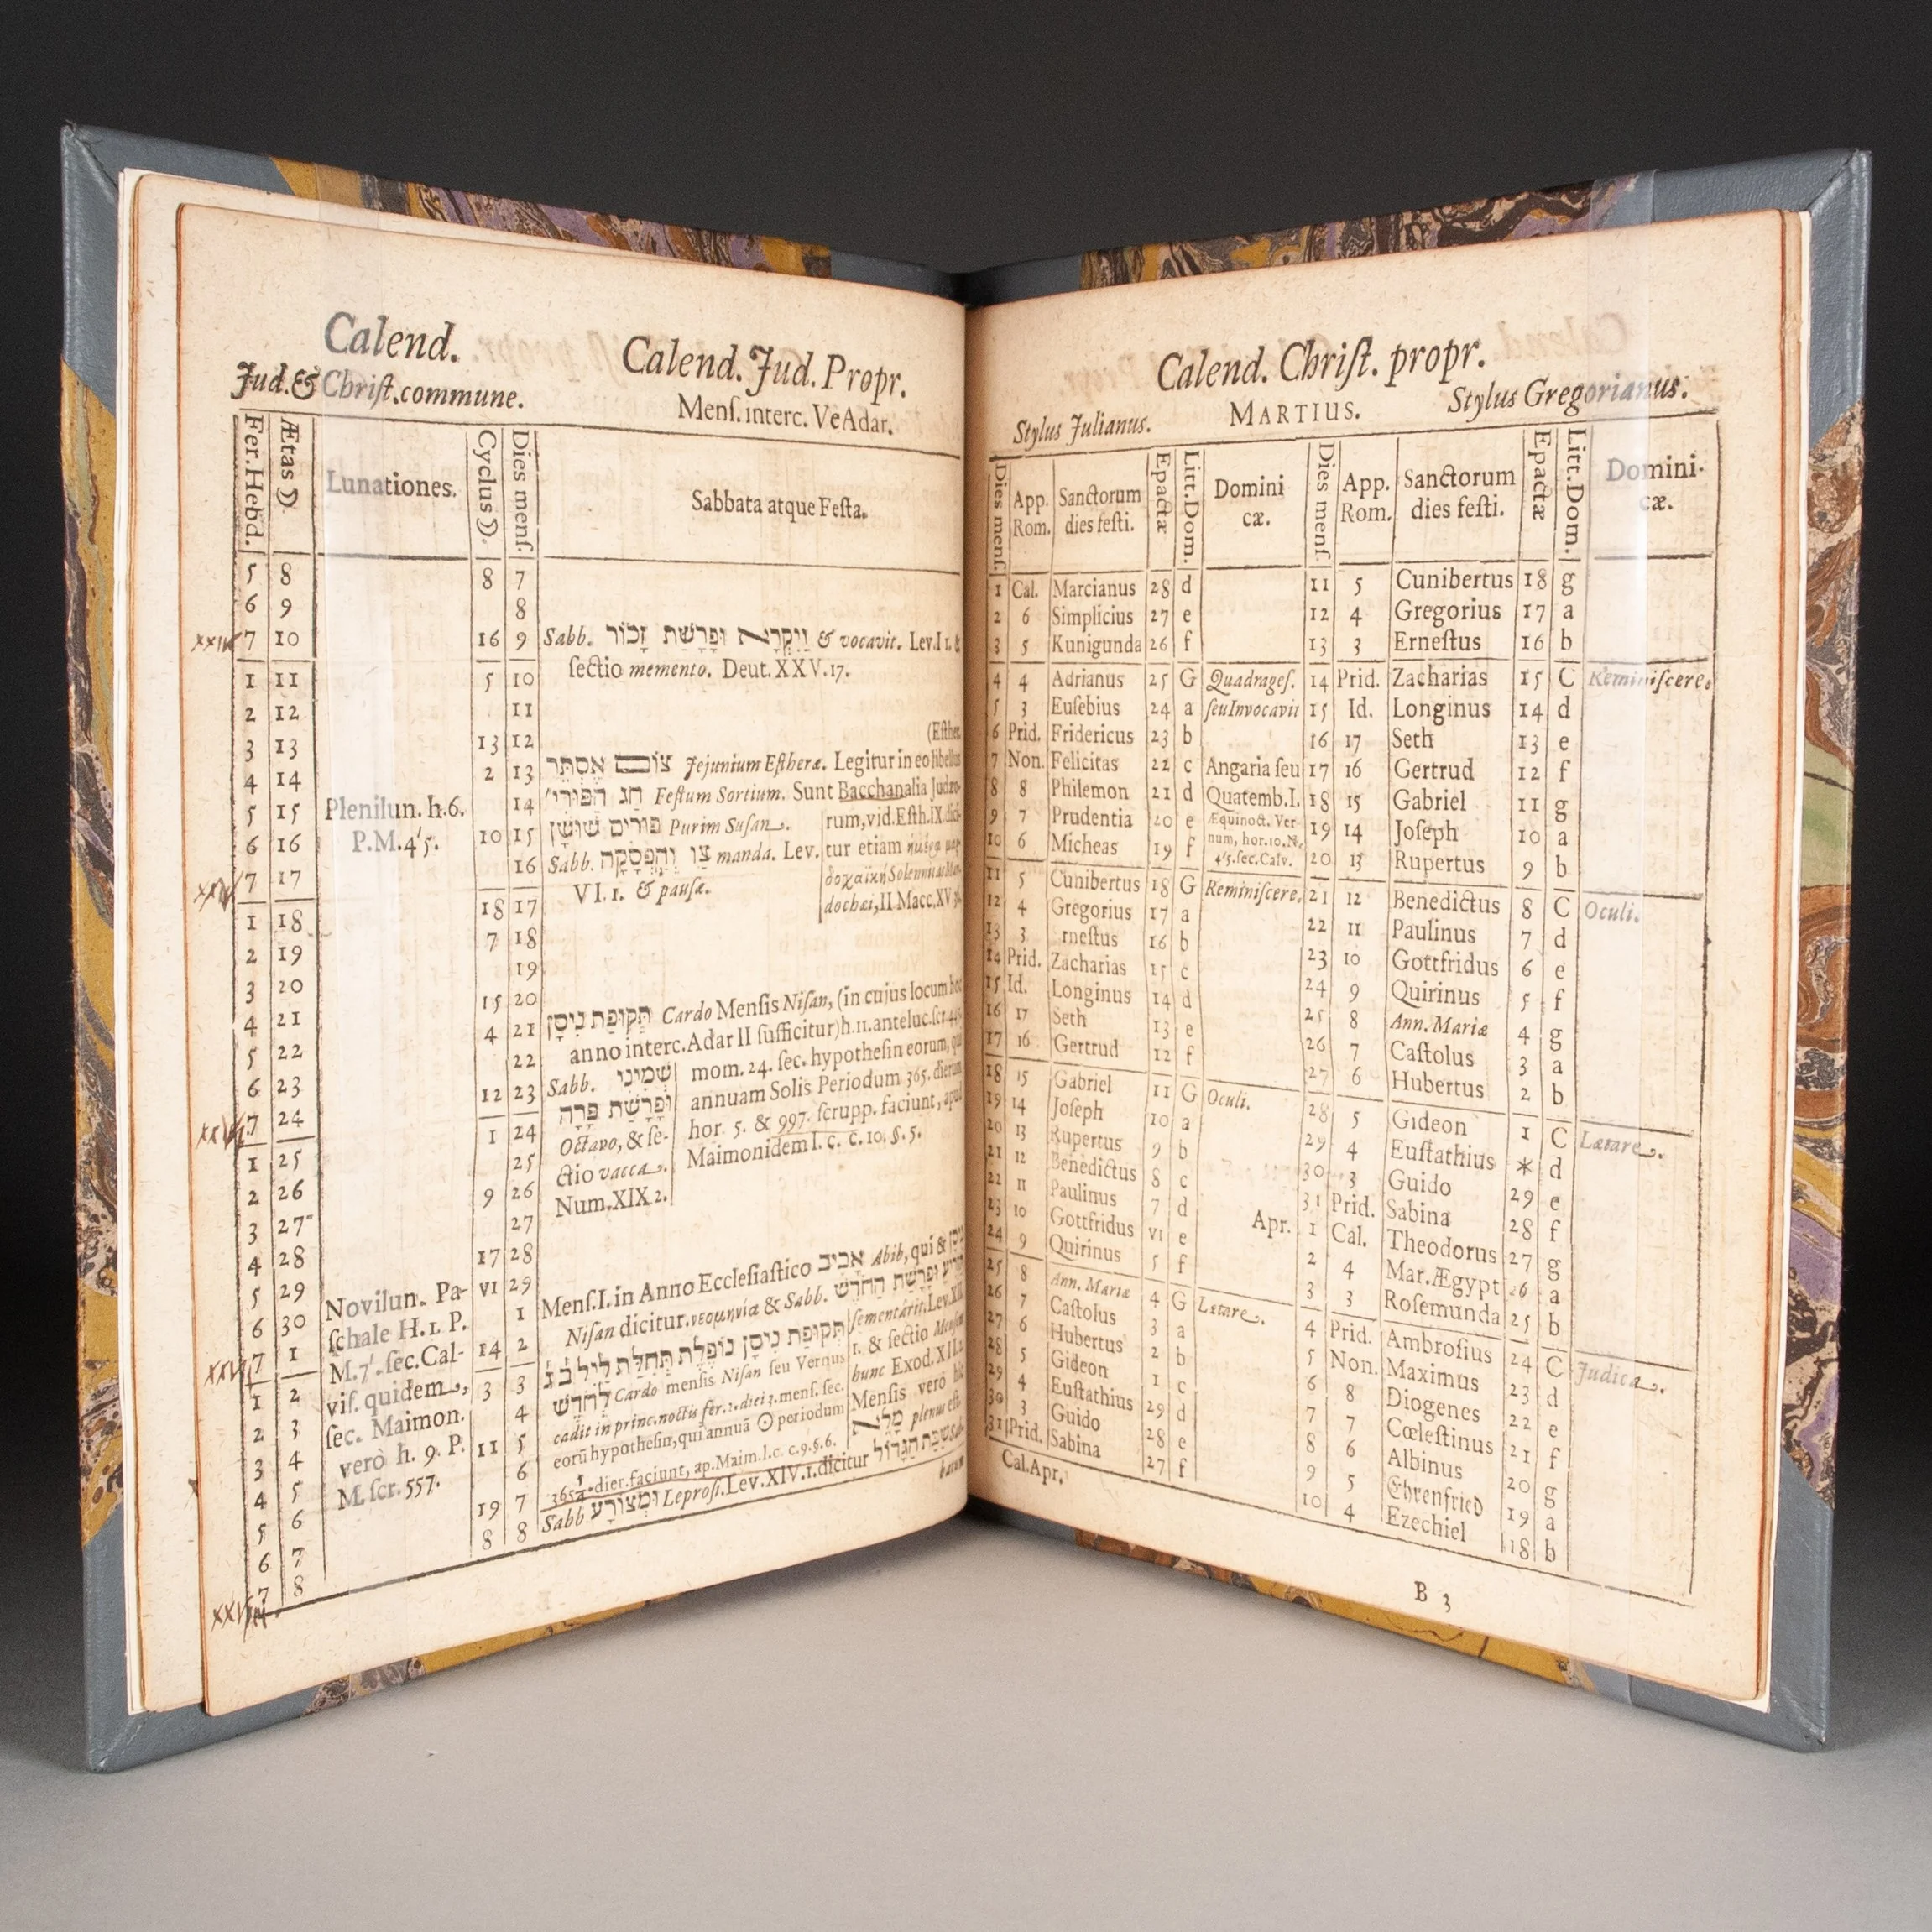 Calend.
Jud. & Chriſt. commune.
Calend. Jud. Propr.
Menſ. interc. VeAdar.
Fer. Hebd.
Ætas ☽.
Lunationes.
Cyclus ☽.
Dies menſ.
Sabbata atque Feſta.
5 8 8 7
6 9 8
7 10 16 9 Sabb. וַיִּקְרָא וּפָרָשַׁת זָכוֹר & vocavit. Lev. I 1. &
ſectio memento. Deut. XXV. 17.
1 11 5 10
2 12 11
(Eſther.
3 13 13 12
4 14 2 13 צוֹם אֶסְתֵּר Jejunium Eſtheræ. Legitur in eo libellus
5 15 Plenilun. h. 6. 14 חַג הַפּוּרִי' Feſtum Sortium. Sunt Bacchanalia Judæo-
6 16 P.M. 4'5. 10 15 פּוּרִים שׁוּשָׁן Purim Suſan. rum, vid. Eſth. IX. dici-
7 17 16 Sabb. צַו וְהַפְסָקָה manda. Lev. tur etiam
VI. 1. & pauſæ.
dochæi, II Macc. XV
1 18 18 17
2 19 7 18
3 20 19
4 21 15 20
5 22 4 21 תְּקוּפַת נִיסָן Cardo Menſis Niſan, (in cujus locum hoc
6 23 22 anno interc. Adar II ſufficitur) h. 11. anteluc. ſcr.
7 24 12 23 Sabb. שְׁמִינִי mom. 24. ſec. hypotheſin eorum, qui
וּפָרָשַׁת פָּרָה annuam Solis Periodum 365. dierum
1 25 1 24 Octavo, & ſe- hor. 5. & 997. ſcrupp. faciunt, apud
2 26 25 ctio vacca. Maimonidem l. c. c. 10. §. 5.
3 27 9 26 Num. XIX 2.
4 28 27
5 29 17 28
6 30 Novilun. Pa- VI 29 Menſ. I. in Anno Eccleſiaſtico אָבִיב Abib, qui & נִיסָן
7 1 ſchale H. 1. P. 1 Niſan dicitur. νεομηνία & Sabb. וּפָרָשַׁת הַחֹדֶשׁ
1 2 M. 7'. ſec. Cal- 14 2 תְּקוּפַת נִיסָן נוֹפֶלֶת תְּחִלַּת לֵיל ב' ג' ſementarit. Lev. XII.
2 3 viſ. quidem, 3 3 לַחֹדֶשׁ Cardo menſis Niſan ſeu Vernus 1. & ſectio Menſem
3 4 ſec. Maimon. 4 cadit in princ. noctis fer. 2. diei 3. menſ. ſec. hunc Exod. XII.
4 5 verò h. 9. P. 11 5 eorũ hypotheſin, qui annuã ☉ periodum Menſis verò hic
5 6 M. ſcr. 557. 6 365¼ dier. faciunt, ap. Maim. l. c. c. 9. §. 6. מָלֵא plenus eſt.
6 7 19 7 Sabb. וּמְצוֹרָע Leproſi. Lev. XIV. 1. dicitur שַׁבָּת הַגָּדוֹל Sab-
7 8 8 8 batum
Calend. Chriſt. propr.
Stylus Julianus.
MARTIUS.
Stylus Gregorianus.
Dies menſ.
App. Rom.
Sanctorum dies feſti.
Epactæ
Litt. Dom.
Domini cæ.
Dies menſ.
App. Rom.
Sanctorum dies feſti.
Epactæ
Litt. Dom.
Domini- cæ.
1 Cal. Marcianus 28 d 11 5 Cunibertus 18 g
2 6 Simplicius 27 e 12 4 Gregorius 17 a
3 5 Kunigunda 26 f 13 3 Erneſtus 16 b
4 4 Adrianus 25 G Quadrageſ. 14 Prid. Zacharias 15 C Reminiſcere.
5 3 Euſebius 24 a ſeu Invocavit 15 Id. Longinus 14 d
6 Prid. Fridericus 23 b 16 17 Seth 13 e
7 Non. Felicitas 22 c Angaria ſeu 17 16 Gertrud 12 f
8 8 Philemon 21 d Quatemb. I. 18 15 Gabriel 11 g
9 7 Prudentia 20 e Æquinoct. Ver- 19 14 Joſeph 10 a
10 6 Micheas 19 f num, hor. 10. N. 20 13 Rupertus 9 b
4'5. ſec. Calv.
11 5 Cunibertus 18 G Reminiſcere. 21 12 Benedictus 8 C Oculi.
12 4 Gregorius 17 a 22 11 Paulinus 7 d
13 3 rneſtus 16 b 23 10 Gottfridus 6 e
14 Prid. Zacharias 15 c 24 9 Quirinus 5 f
15 Id. Longinus 14 d 25 8 Ann. Mariæ 4 g
16 17 Seth 13 e 26 7 Caſtolus 3 a
17 16 Gertrud 12 f 27 6 Hubertus 2 b
18 15 Gabriel 11 G Oculi. 28 5 Gideon 1 C Lætare.
19 14 Joſeph 10 a 29 4 Euſtathius * d
20 13 Rupertus 9 b 30 3 Guido 29 e
21 12 Benedictus 8 c 31 Prid. Sabina 28 f
22 11 Paulinus 7 d Apr. 1 Cal. Theodorus 27 g
23 10 Gottfridus VI e 2 4 Mar. Ægypt 26 a
24 9 Quirinus 5 f 3 3 Roſemunda 25 b
25 8 Ann. Mariæ 4 G Lætare. 4 Prid. Ambroſius 24 C Judica.
26 7 Caſtolus 3 a 5 Non. Maximus 23 d
27 6 Hubertus 2 b 6 8 Diogenes 22 e
28 5 Gideon 1 c 7 7 Cœleſtinus 21 f
29 4 Euſtathius 29 d 8 6 Albinus 20 g
30 3 Guido 28 e 9 5 Ehrenfried 19 a
31 Prid. Sabina 27 f 10 4 Ezechiel 18 b
Cal. Apr.
B 3